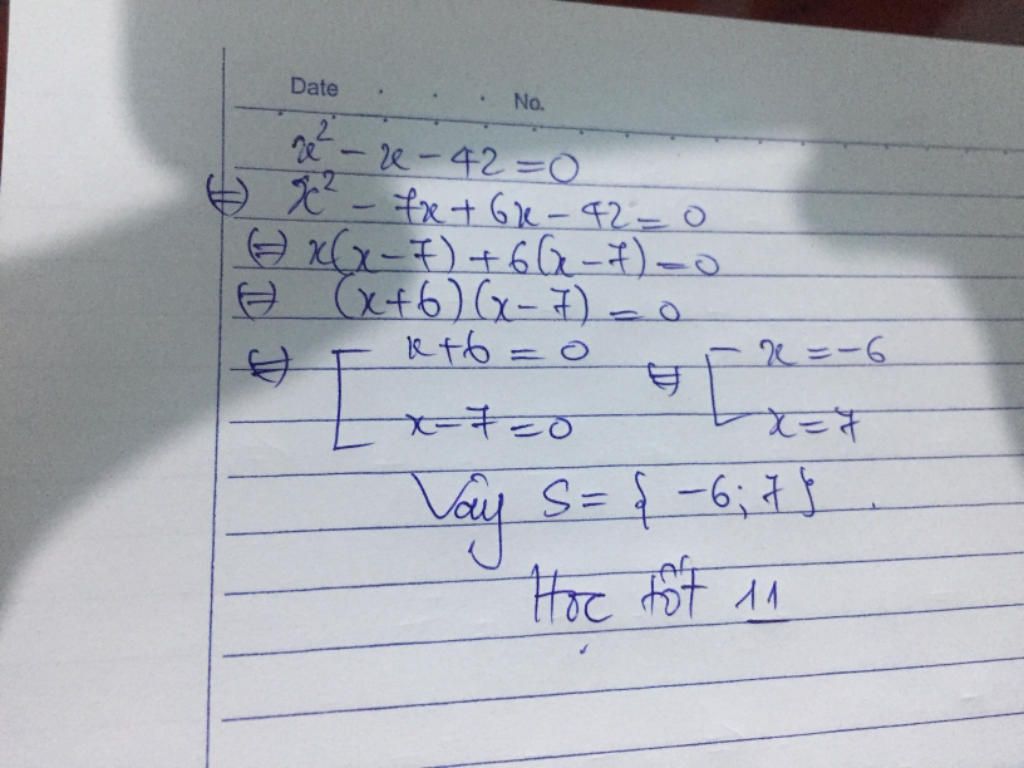 Date . . . No.
x² - x - 42 = 0
⇔ x² - 7x + 6x - 42 = 0
⇔ x(x - 7) + 6(x - 7) = 0
⇔ (x + 6)(x - 7) = 0
⇔ [ x + 6 = 0 ⇔ [ x = -6
x - 7 = 0 x = 7
Vậy S = { -6; 7 } .
Học tốt 11